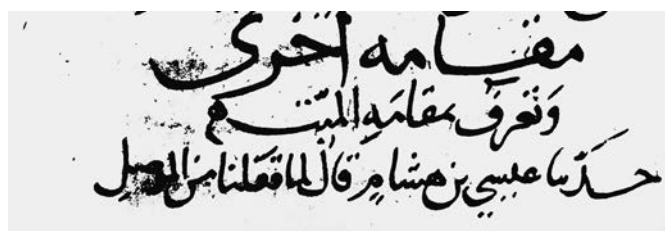 مقامه اخرى
وَتعرفُ بمقامَهِ
حدّثنا عيسي بن هشامٍ قالَ لما قفَلنا من الموصِلِ